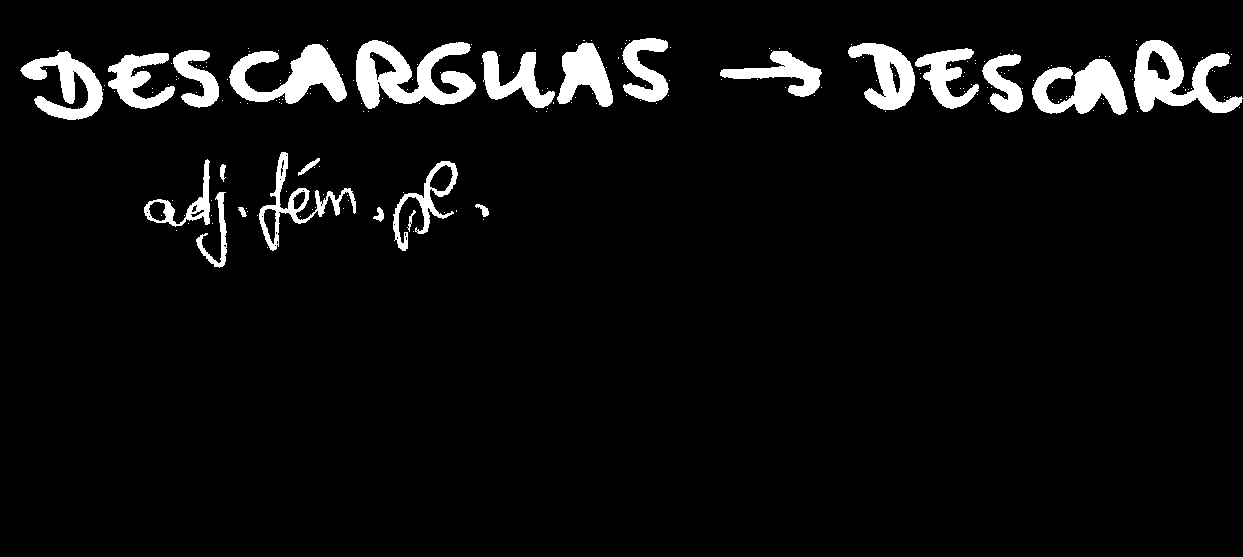 DESCARGUAS → DESCARC
adj. fém. pl.